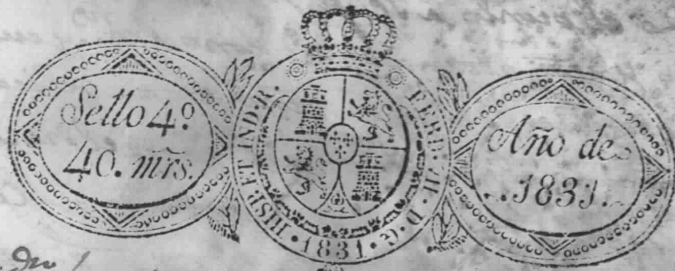 Sello 4º
40. mrs.
HISP. ET IND. R. FERD. VII. D. G. 1831
Año de
1831.